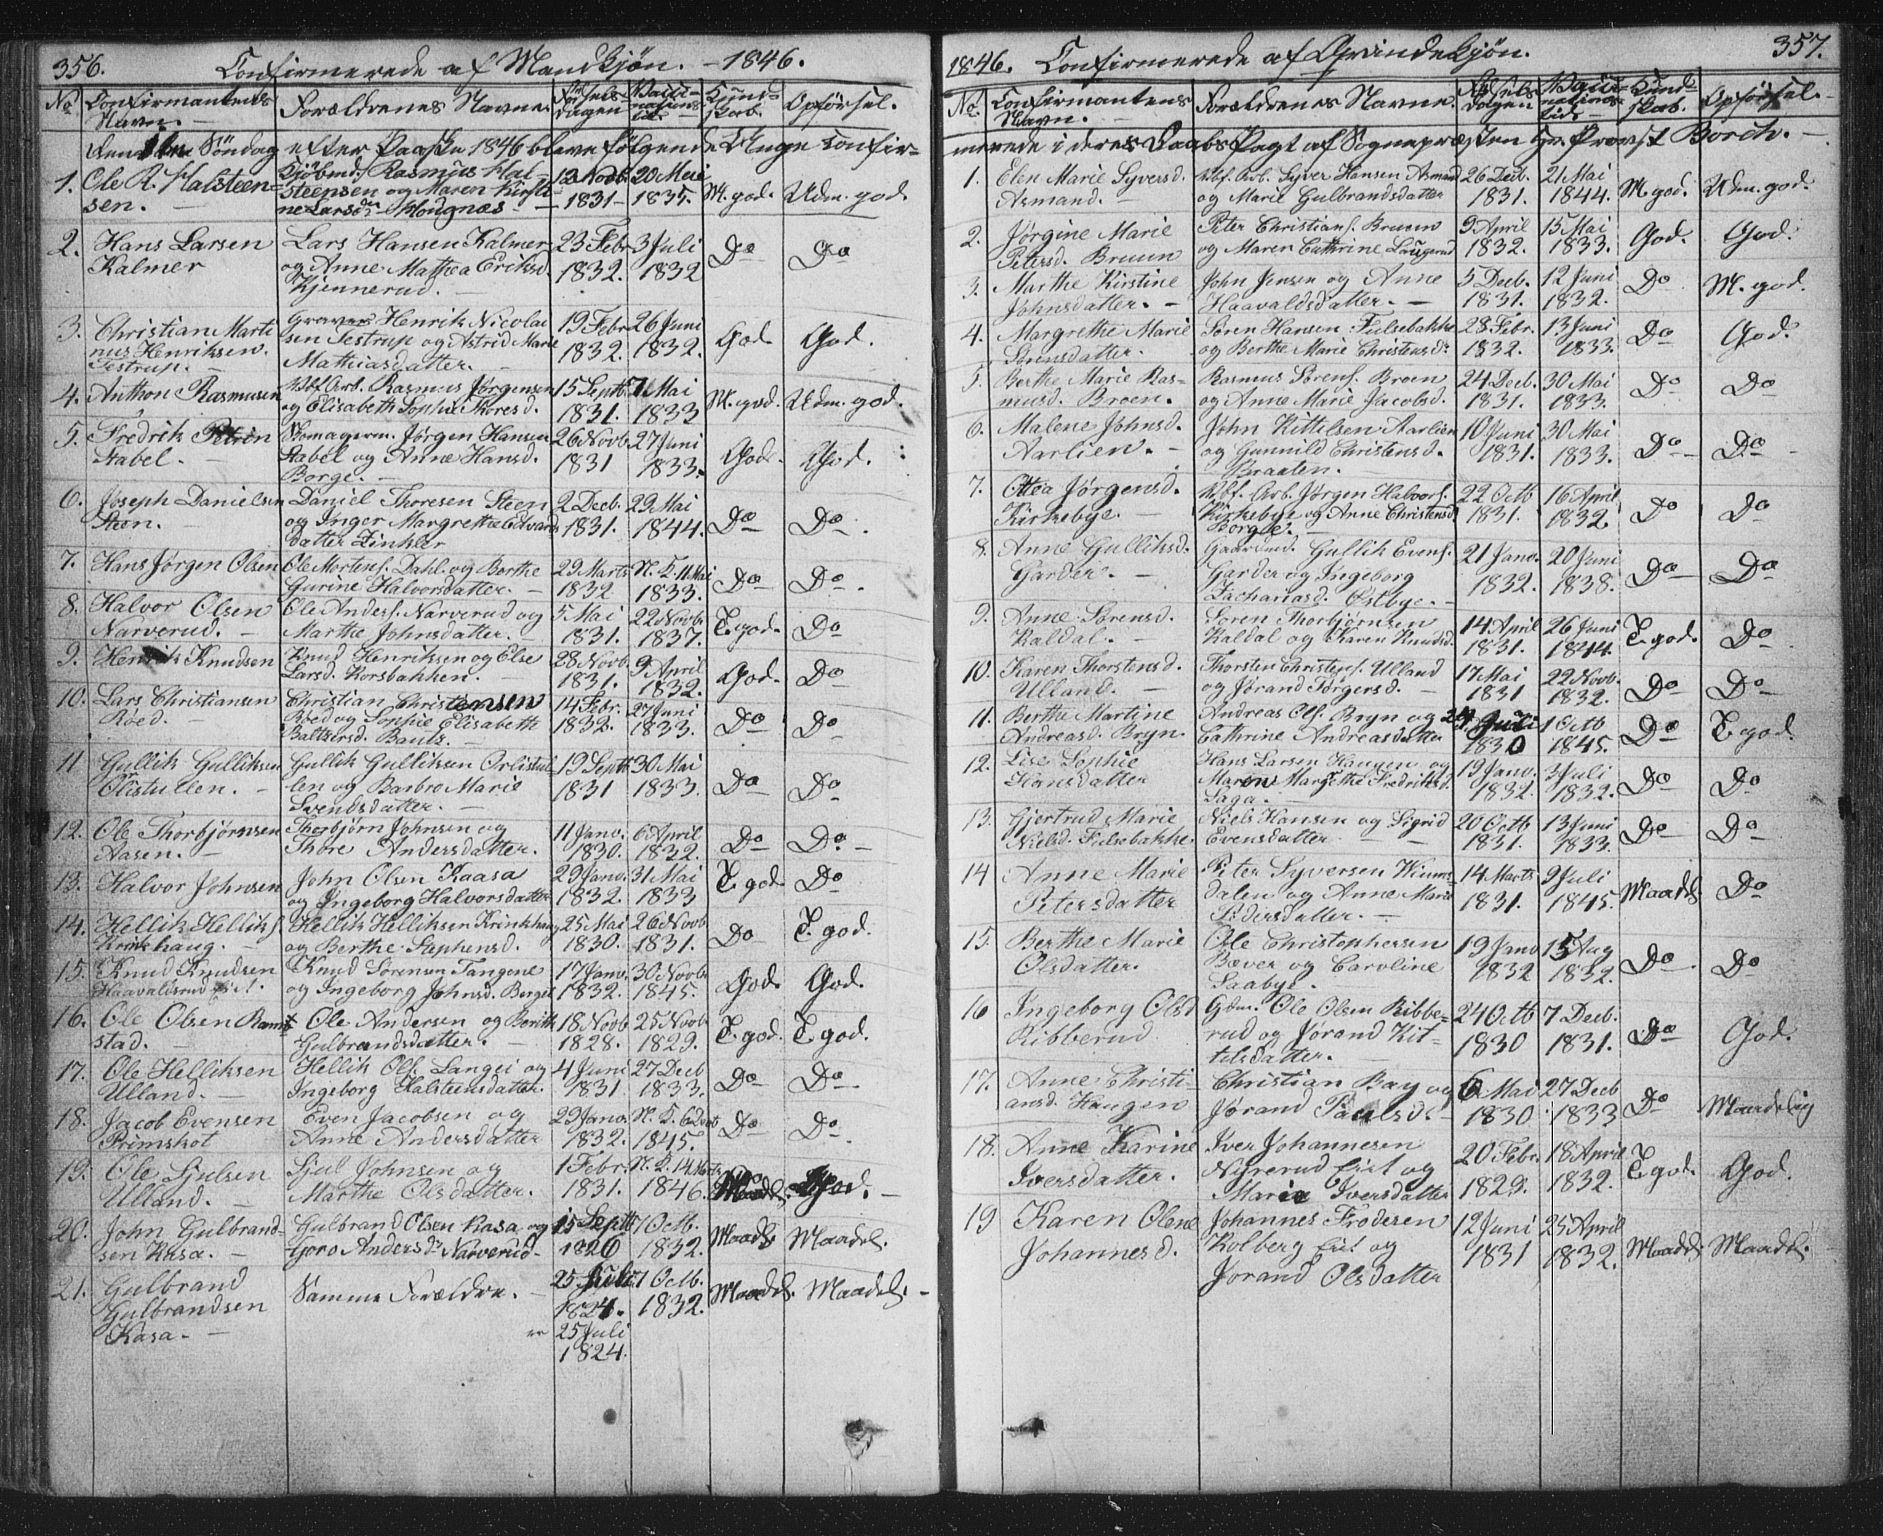 356.
Confirmerede af Mandkjøn. - 1846.
No Confirmantens Navn. - Forældrenes Navne. Fødsels Dagen Vaccinations tid. - Kundskab. Opførsel.
Søndag efter Paaske 1846 bleve følgende Unge Confir-
1. Ole R. Halsteen- Kjøbmd. Rasmus Hal- 13 Novb. 20 Mai
sen. - steensen og Maren Kirsti- 1831 - 1835. M. god. Udm. god.
ne Larsdr
2. Hans Larsen Lars Hansen Kalmer 23 Febr. 3 Juli Do Do
Kalmer og Anne Mathea Eriksd. 1832. 1832
Kjennerud. -
3. Christian Marti Graver Henrik Nicolai 19 Febr 26 Juni God. God.
nus Henriksen. sen Testrup og Astrid Marie 1832. 1832.
Testrup. - Mathiasdatter. -
4. Anthon Rasmusen Rasmus Jørgensen 15 Septb. 7 Mai M. god. Udm. god.
og Elisabeth Sophie Thoresd. 1831. 1833
5. Fredrik Jørgen Hansen 26 Novb. 27 Juni God. God.
Stabel. - Stabel og Anne Hansd. 1831 1833.
Borge. -
6. Joseph Danielsen Daniel Thoresen Steen 2 Decb. 29 Mai Do Do.
Steen. - og Inger Margrethe Edvards 1831. 1844.
datter Zinkler
7. Hans Jørgen Olsen Ole Mortens. Dahl og Berthe 29 Marts N. K. 11 Mai Do Do.
Gurine Halvorsdatter. - 1832 1833.
8. Halvor Olsen Ole Anders. Narverud og 5 Mai 22 Novb. T. god. Do
Narverud. - Marthe Johnsdatter. - 1831. 1837.
9. Henrik Knudsen Knud Henriksen og Else 28 Novb. 9 April God. Do
Larsd. Korsbakken. - 1831. 1832.
10. Lars Christiansen Christian Christiansen 14 Febr. 27 Juni Do Do.
Röed. Röed og Sophie Elisabeth 1832. 1833.
Baltsersd. Bautz. -
11 Gullik Gulliksen Gullik Gulliksen Orlistul 19 Septb. 30 Mai Do Do.
Olistullen. - len og Barbro Marie 1831 1833.
Svendsdatter. -
12. Ole Thorbjørnsen Thorbjørn Johnsen og 11 Janv. 6 April Do Do -
Aasen. - Thore Andersdatter. 1830. 1832.
13. Halvor Johnsen John Olsen Kaasa 29 Janv. 31 Mai T. god Do
og Ingeborg Halvorsdatter 1832. 1833
14. Hellik Helliks. Hellik Helliksen Krinkhaug 25 Mai 26 Novb Do T. god.
Krinkhaug. - og Berthe Stephensd. 1830. 1831.
15. Knud Knudsen Knud Sörensen Tangene 17 Janv. 30 Novb. God. God.
Haavaldsrud og Ingeborg Johnsd. Berget 1832. 1845.
16. Ole Olsen Ramstad. - Ole Andersen og Berith 18 Novb 25 Novb T. god. T. god.
Gulbrandsdatter. 1828. 1829.
17. Ole Helliksen Hellik Ols. Langei og 4 Juni 27 Decb Do Do.
Ulland. - Ingeborg Halsteensdatter. 1831 1833.
18. Jacob Evensen Even Jacobsen og 29 Janv. N. K. 6 Do Do.
Primskot Anne Andersdatter 1832. 1845.
19. Ole Sjulsen Sjul Johnsen og 1 Febr. N. K. 14 Marts God. -
Ulland. - Marthe Olsdatter. 1831. 1846.
20. John Gulbrand- Gulbrand Olsen Kasa og 15 Septb 7 Octb. Maadel. Maadel.
sen Kasa. - Goro Andersdr Narverud. 1826 1832.
21. Gulbrand Samme Forældre. - 25 Juli 7 Octb. Maadel. Maadel. -
Gulbrandsen 1824. 1832.
Kasa. - 25 Juli
1824.
357.
1846. Confirmerede af Qvindekjøn.
No. Confirmantens Navn. - Forældrenes Navne. Fødsels Dagen Vaccinations tid. - Kundskab. Opførsel. -
merede i deres Daabs Pagt af Sognepræsten Hr. Provst Borch. -
1. Elen Marie Syversd. Arb. Syver Hansen Asmand 26 Decb. 21 Mai M. god. Udm. god.
Asmand. - og Marie Gulbrandsdatter 1831. 1844.
2. Jørgine Marie Peter Christians. Bruun 9 April 15 Mai God. God.
Petersd. Bruun og Maren Cathrine Laugerud 1832. 1833.
3. Marthe Kirstine John Jensen og Anne 5 Decb. 12 Juni Do M. god.
Johnsdatter. - Haavaldsdatter. - 1831. 1832.
4. Margrethe Marie Sören Hansen Fulsebakke 28 Febr. 13 Juni Do God.
Sörensdatter. og Berthe Marie Christensdr 1832. 1833.
5. Berthe Marie Ras- Rasmus Sörens. Broen 24 Decb. 30 Mai Do Do
musd. Broen. og Anne Marie Jacobsd. 1831. 1833.
6. Malene Johnsd. John Kittilsen Aarlien 10 Juni 30 Mai Do - Do
Aarlien. - og Gunnild Christensd. 1831. 1833.
Braaten.
7. Ottea Jørgensd. Arb. Jørgen Halvors. 22 Octb 16 April Do Do
Kirkebye. - Kirkebye og Anne Christensd 1831. 1832.
Borge. -
8. Anne Gulliksd. Gaardmd. Gullik Evens. 21 Janv. 20 Juni Do Do
Garder. - Garder og Ingeborg 1832. 1838.
Zachariasd. Østbye. -
9. Anne Sörensd. Sören Thorbjörnsen 14 April 26 Juni T. god. Do
Kaldal. - Kaldal og Karen Knudsd. 1831. 1844.
10. Karen Thorstensd. Thorsten Christens. Ulland 17 Mai 22 Novb. Do Do
Ulland. - og Jörand Törgersd. - 1831 1832.
11. Berthe Martine Andreas Ols. Bryn og 24 Juli 1 Octb Do T. god.
Andreasd. Bryn. Cathrine Andreasdatter 1830 1845.
12. Lise Sophie Hans Larsen Haugen og 19 Janv. 3 Juli Do Do
Hansdatter Maren Margrethe Fredriksd. 1832. 1832.
Saga. -
13. Gjertrud Marie Niels Hansen og Sigrid 20 Octb 13 Juni Do Do
Nielsd. Fulsebakke Evensdatter. - 1831. 1833.
14 Anne Marie Peter Syversen Wiums- 14 Marts 9 Juli Maadel. Do
Petersdatter dalen og Anne Marie 1831. 1845.
Pedersdatter. -
15. Berthe Marie Ole Christophersen 19 Janv 15 Aug Do Do
Olsdatter. Bæver og Caroline 1832 1832.
Saabye. -
16 Ingeborg Olsd Gdm. Ole Olsen Ribbe- 24 Octb 7 Decb. Do God.
Ribberud rud og Jörand Kit- 1830 1831.
tilsdatter. -
17. Anne Christi- Christian Bay og 6 Mai 27 Decb Do Maadelig
ansd. Haugen Jörand Paulsd. - 1830 1833
18. Anne Karine Iver Johannesen 20 Febr. 18 April T. god. God.
Iversdatter. Nyrerud Eiet og 1829. 1832.
Marie Iversdatter
19 Karen Olene Johannes Frodesen 12 Juni 25 April Maadel. Maadel.
Johannesd. Kolberg Eiet og 1831 1832.
Jorand Olsdatter